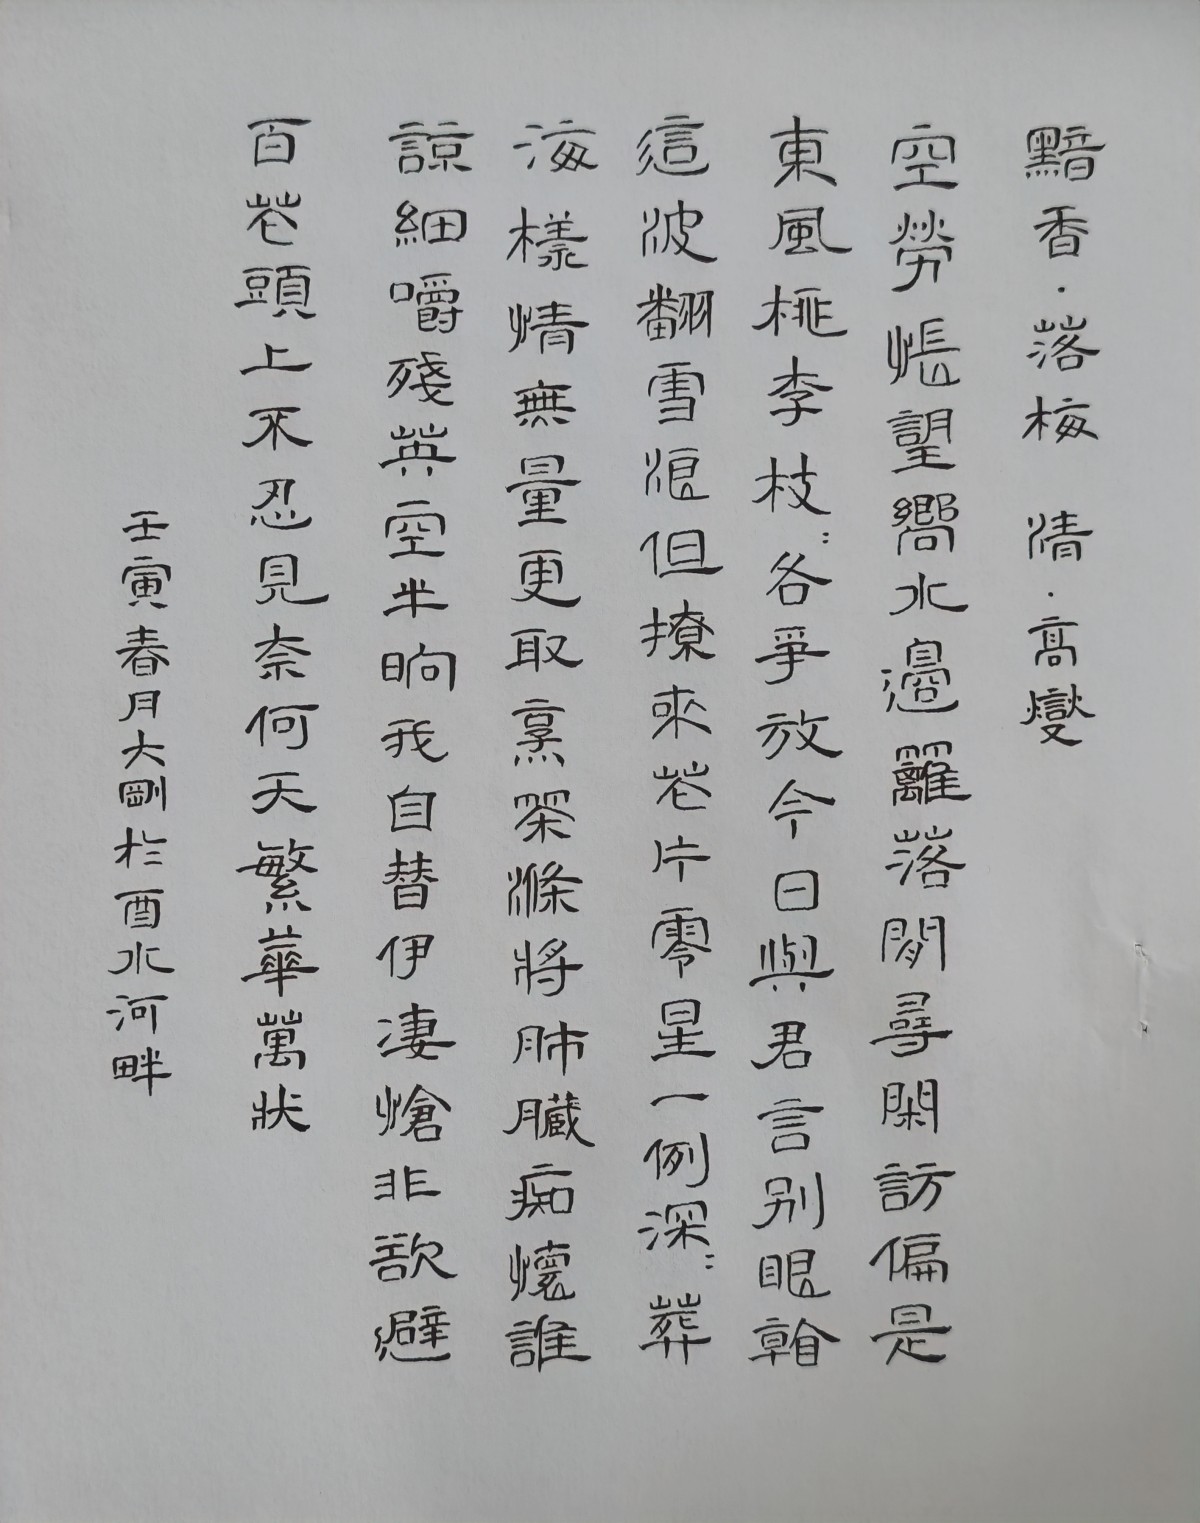 黯香·落梅 清·高燮
空勞悵望嚮水邊籬落閒尋閑訪偏是
東風桃李枝〻各爭放今日與君言别眼朝
這波翻雪浪但撩來花片零星一例深〻葬
海樣情無量更取烹茶滌將肺臟痴懷誰
諒細嚼殘英空半晌我自替伊淒愴非欲避
百花頭上不忍見奈何天繁華萬狀
壬寅春月大剛於酉水河畔